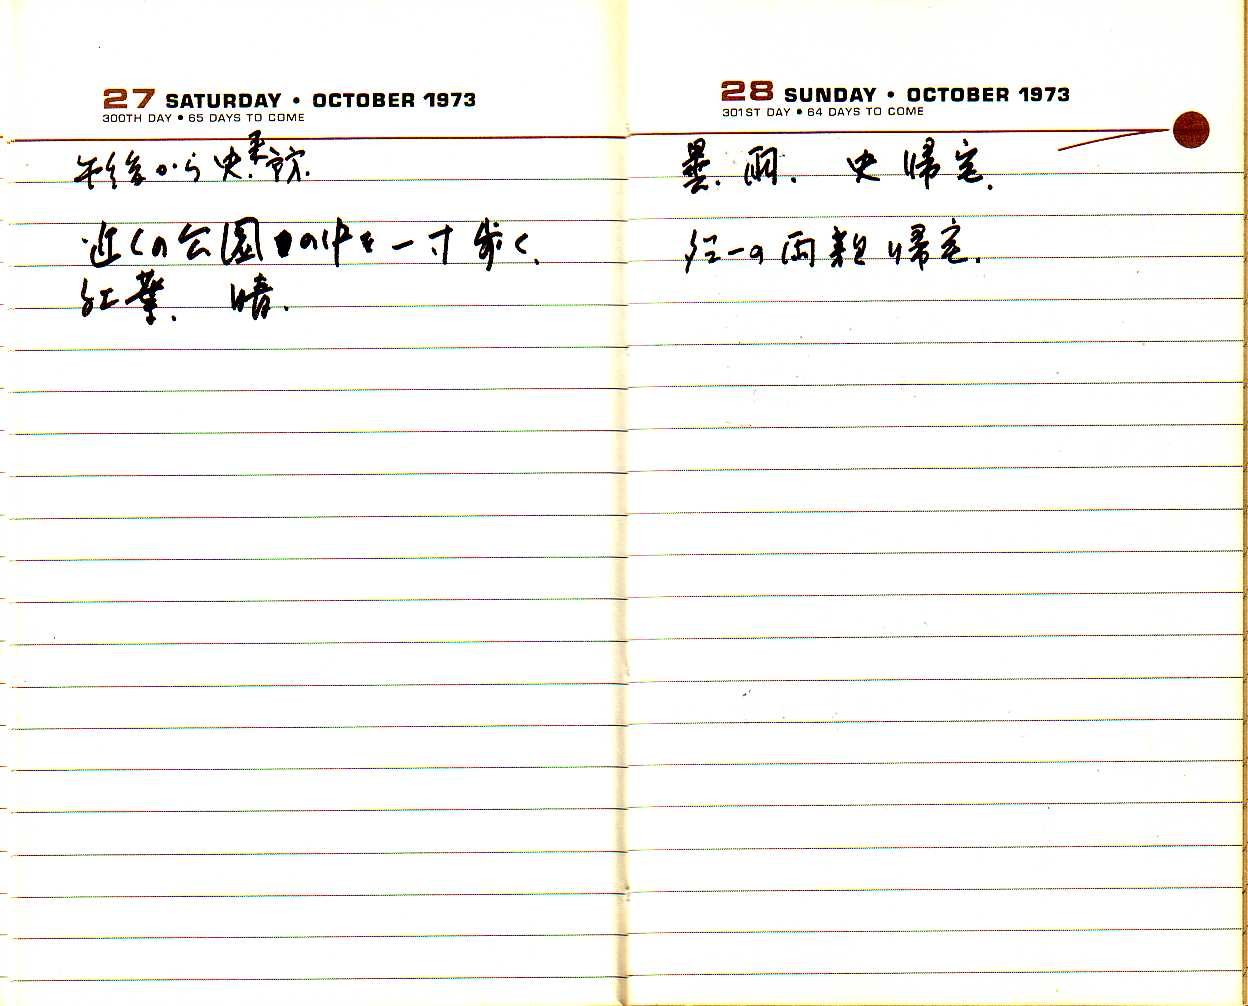 27 SATURDAY • OCTOBER 1973
300TH DAY • 65 DAYS TO COME
午後から史来訪.
近くの公園の中を一寸歩く.
紅葉. 晴.
28 SUNDAY • OCTOBER 1973
301ST DAY • 64 DAYS TO COME
曇. 雨. 史帰宅.
紅一の両親帰宅.